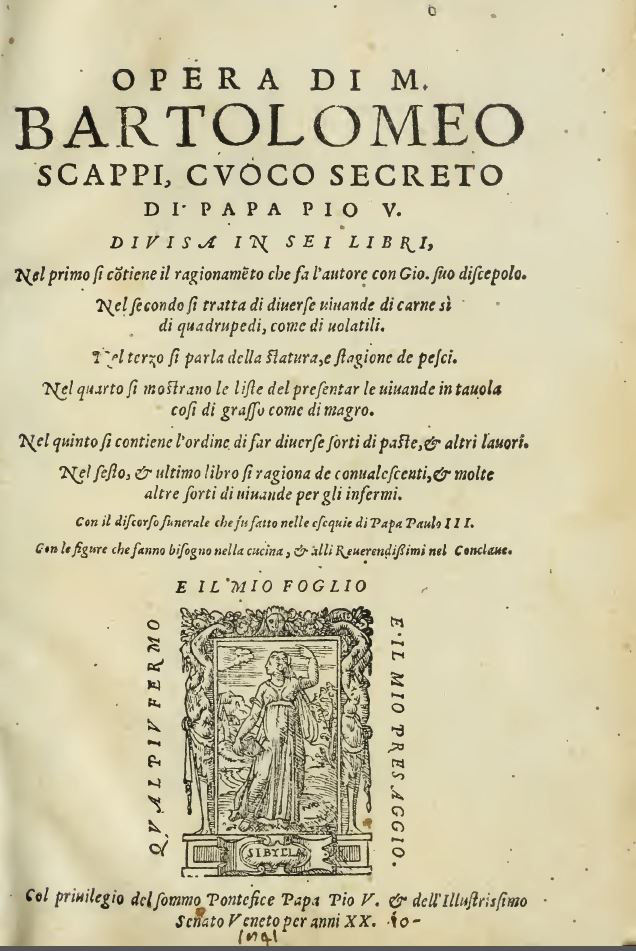 OPERA DI M.
BARTOLOMEO
SCAPPI, CVOCO SECRETO
DI PAPA PIO V.
DIVISA IN SEI LIBRI,
Nel primo ſi cõtiene il ragionamẽto che fa l'autore con Gio. ſuo diſcepolo.
Nel ſecondo ſi tratta di diuerſe uiuande di carne sì
di quadrupedi, come di uolatili.
Nel terzo ſi parla della ſtatura, e ſtagione de peſci.
Nel quarto ſi moſtrano le liſte del preſentar le uiuande in tauola
coſi di graſſo come di magro.
Nel quinto ſi contiene l'ordine di far diuerſe ſorti di paſte, & altri lauori.
Nel ſeſto, & ultimo libro ſi ragiona de conualeſcenti, & molte
altre ſorti di uiuande per gli infermi.
Con il diſcorſo funerale che fu fatto nelle eſequie di Papa Paulo III.
Con le figure che fanno biſogno nella cucina, & alli Reuerendiſſimi nel Conclaue.
E IL MIO FOGLIO
QVAL PIV FERMO
E IL MIO PRESAGGIO.
SIBYLLA
Col priuilegio del ſommo Pontefice Papa Pio V. & dell'Illuſtriſsimo
Senato Veneto per anni XX.